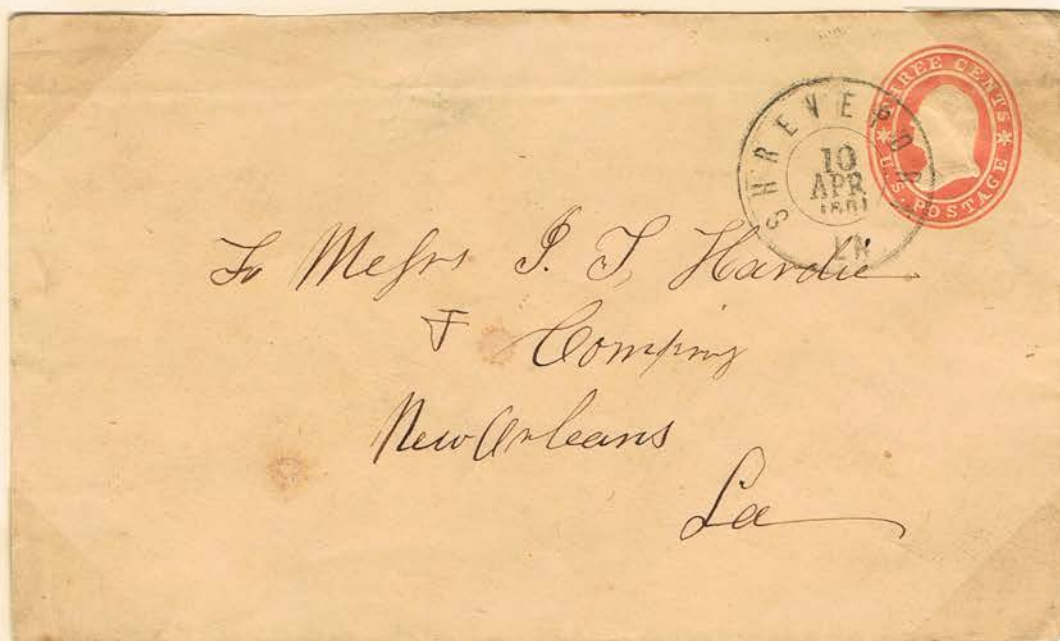 THREE CENTS
U.S. POSTAGE
SHREVEPORT
10
APR
1861
LA
To Messrs J. T. Hardie
& Company
New Orleans
La